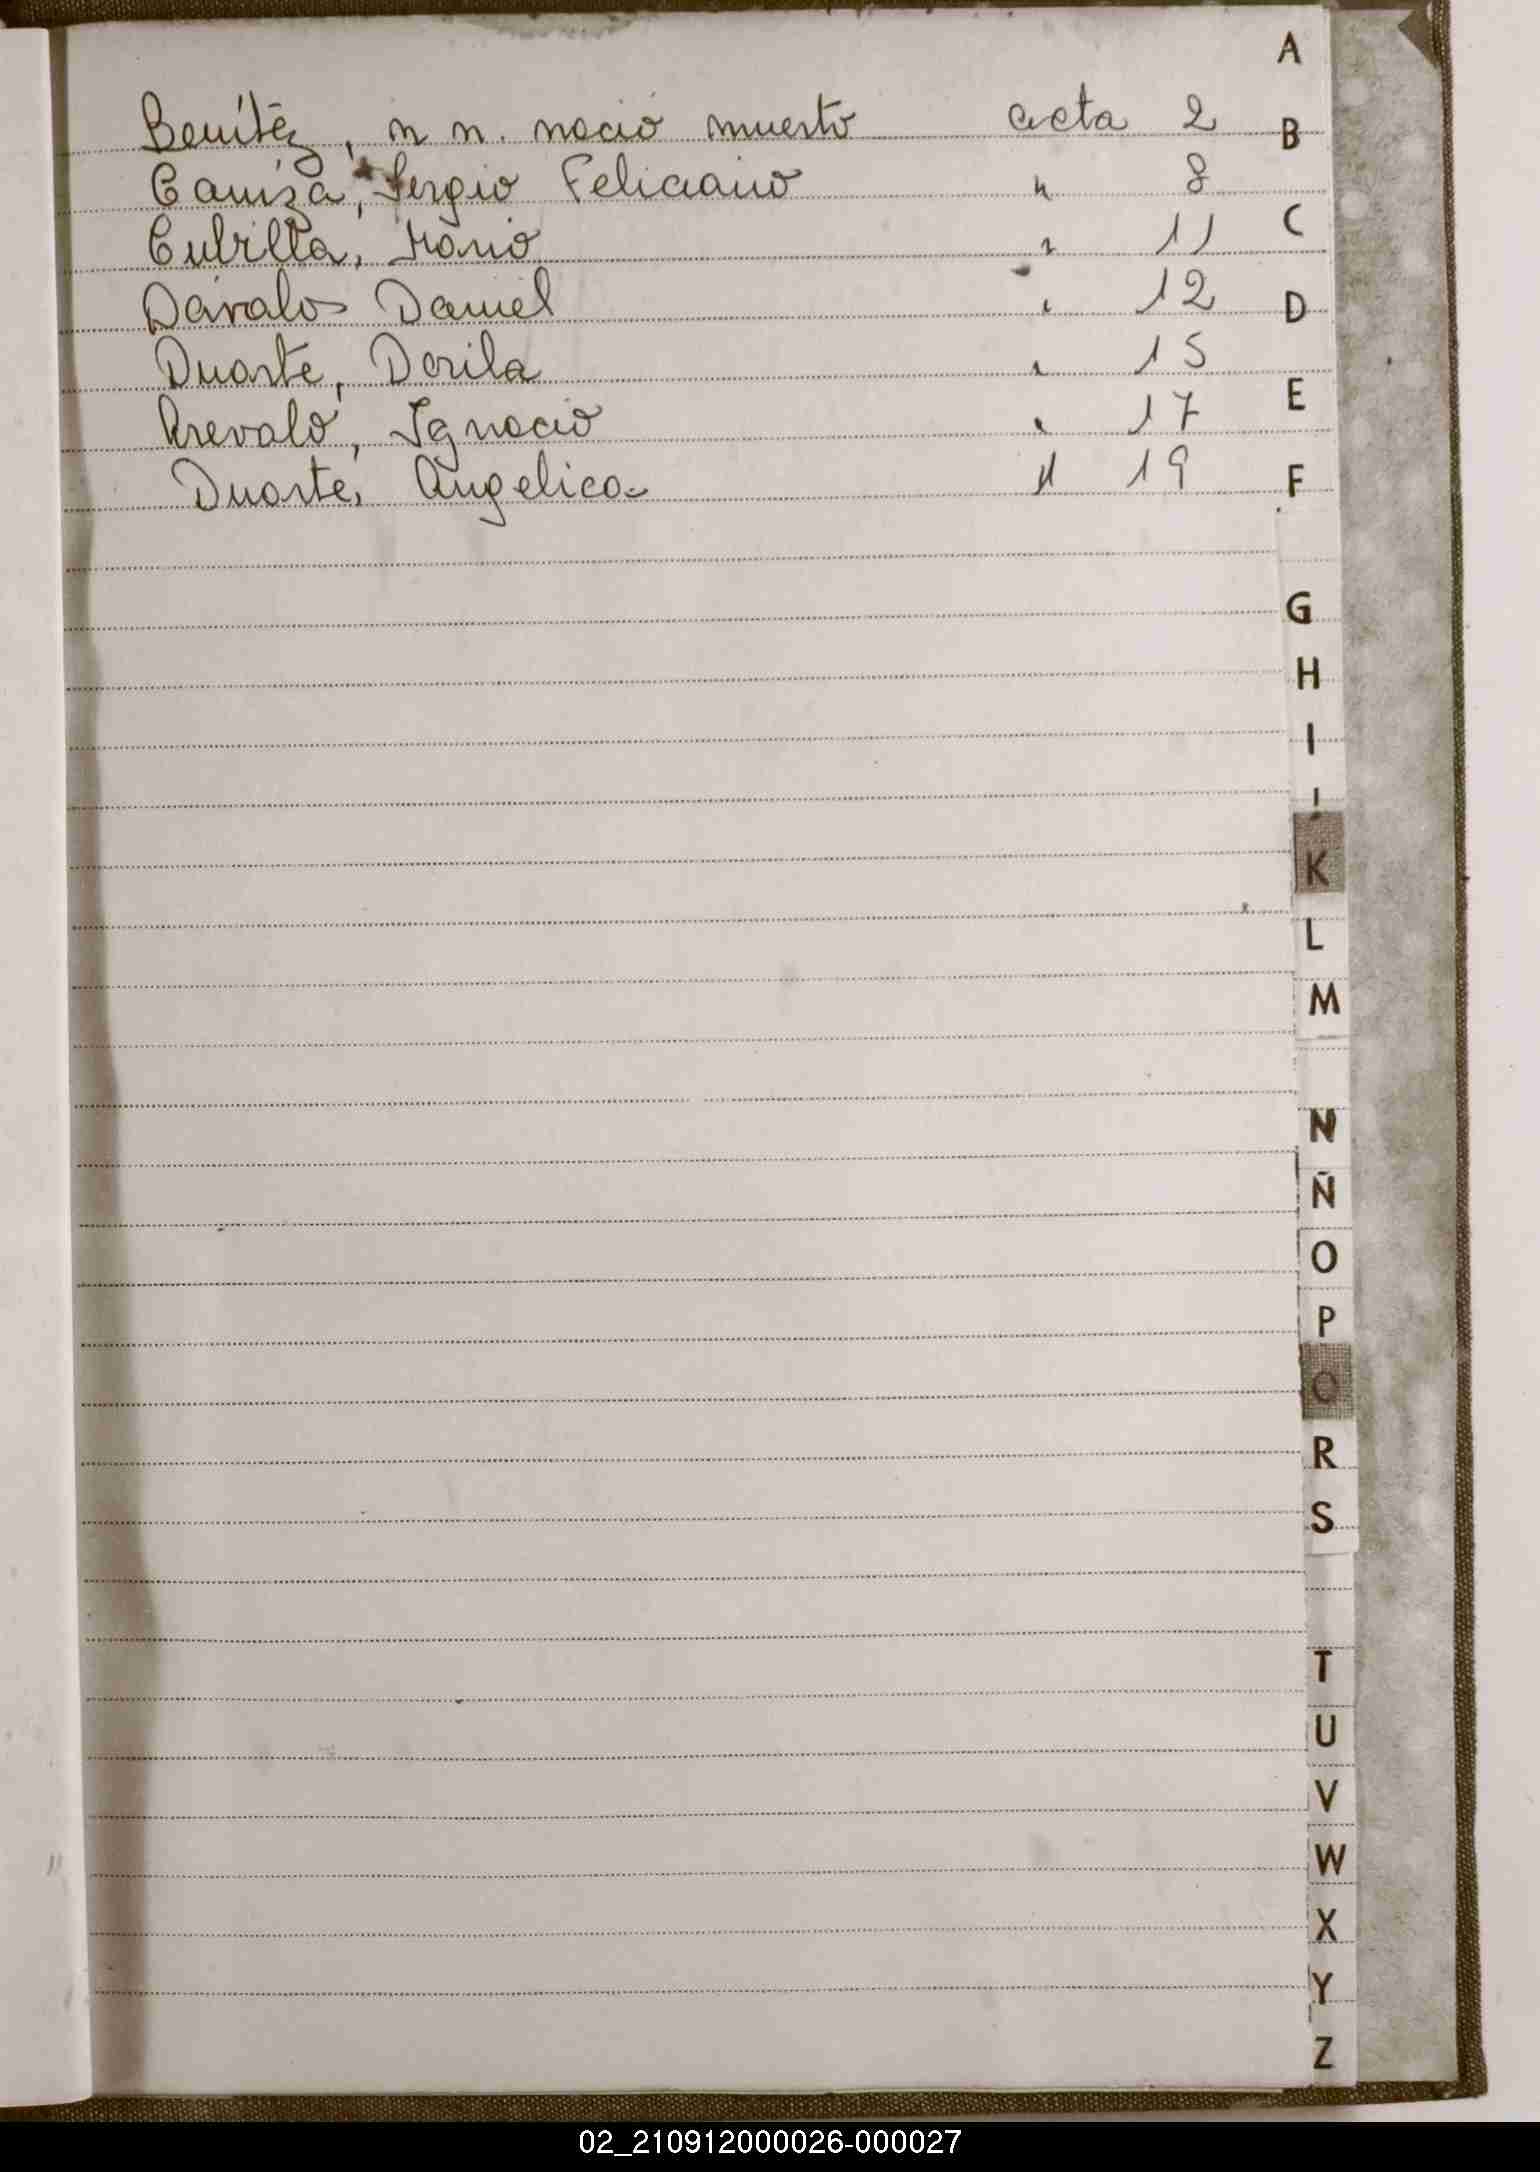 Benítez, n n. nació muerto acta 2
Caniza, Sergio Feliciano " 8
Cubilla, Mario " 11
Dávalos Daniel " 12
Duarte, Dorila " 15
Arevalo, Ignacio " 17
Duarte, Angelica " 19
A
B
C
D
E
F
G
H
I
J
K
L
M
N
Ñ
O
P
Q
R
S
T
U
V
W
X
Y
Z
02_210912000026-000027